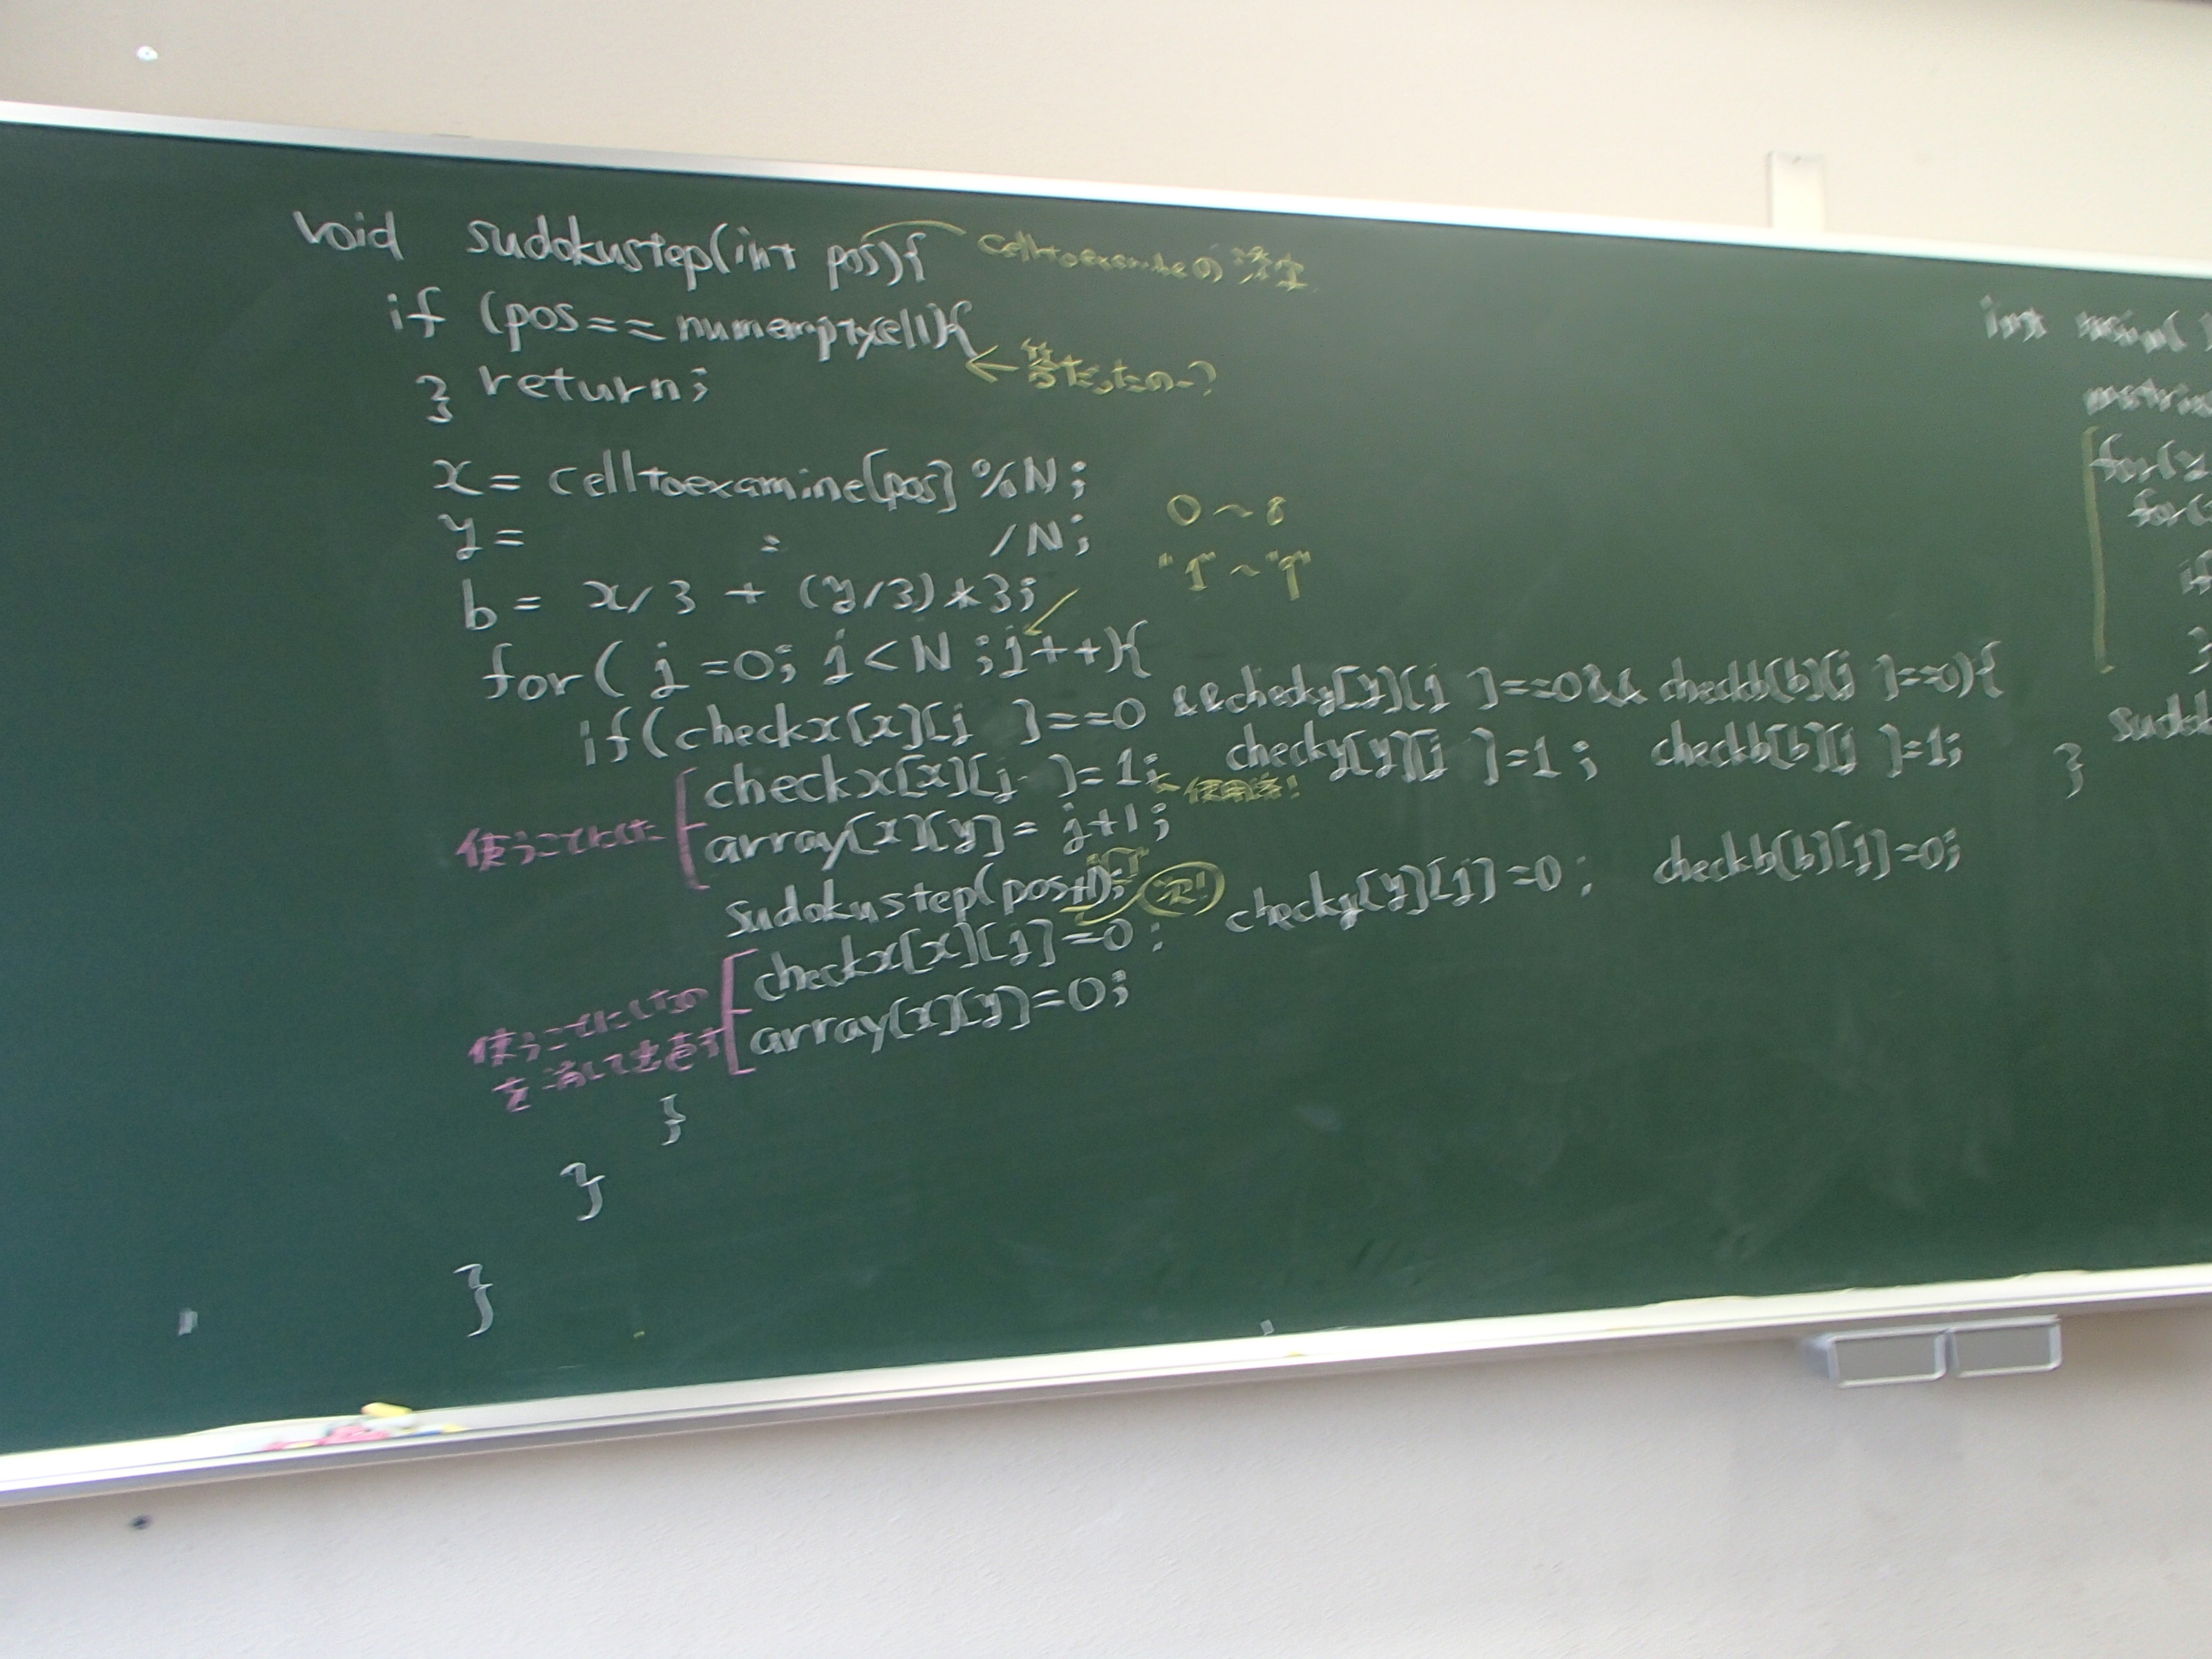 void sudokustep(int pos){ celltoexamineの
if (pos==numemptycell){
} return; ←
x = celltoexamine[pos] %N;
y = 〃 /N; 0～8
b = x/3 + (y/3)*3; "1"～"9"
for( j =0; j<N ;j++){
if(checkx[x][j ]==0 &&checky[y][j ]==0&& checkb[b][j ]==0){
checkx[x][j ]=1; checky[y][j ]=1; checkb[b][j ]=1;
←使用済!
使うことにした array[x][y]= j+1;
sudokustep(pos+1); 次!
checkx[x][j]=0; checky[y][j]=0; checkb[b][j]=0;
使うことにしたの
array[x][y]=0;
を消して
}
}
}
int
for(
for(
if
}
sudok
}